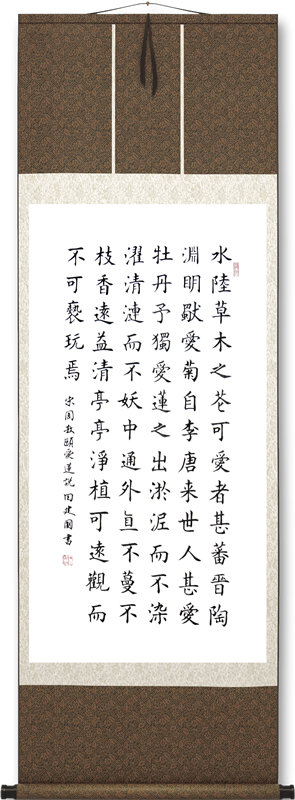 水陸草木之花可愛者甚蕃晉陶
淵明獨愛菊自李唐来世人甚愛
牡丹予獨愛蓮之出淤泥而不染
濯清漣而不妖中通外直不蔓不
枝香遠益清亭亭淨植可遠觀而
不可褻玩焉
宋周敦頤愛蓮説 田 國書